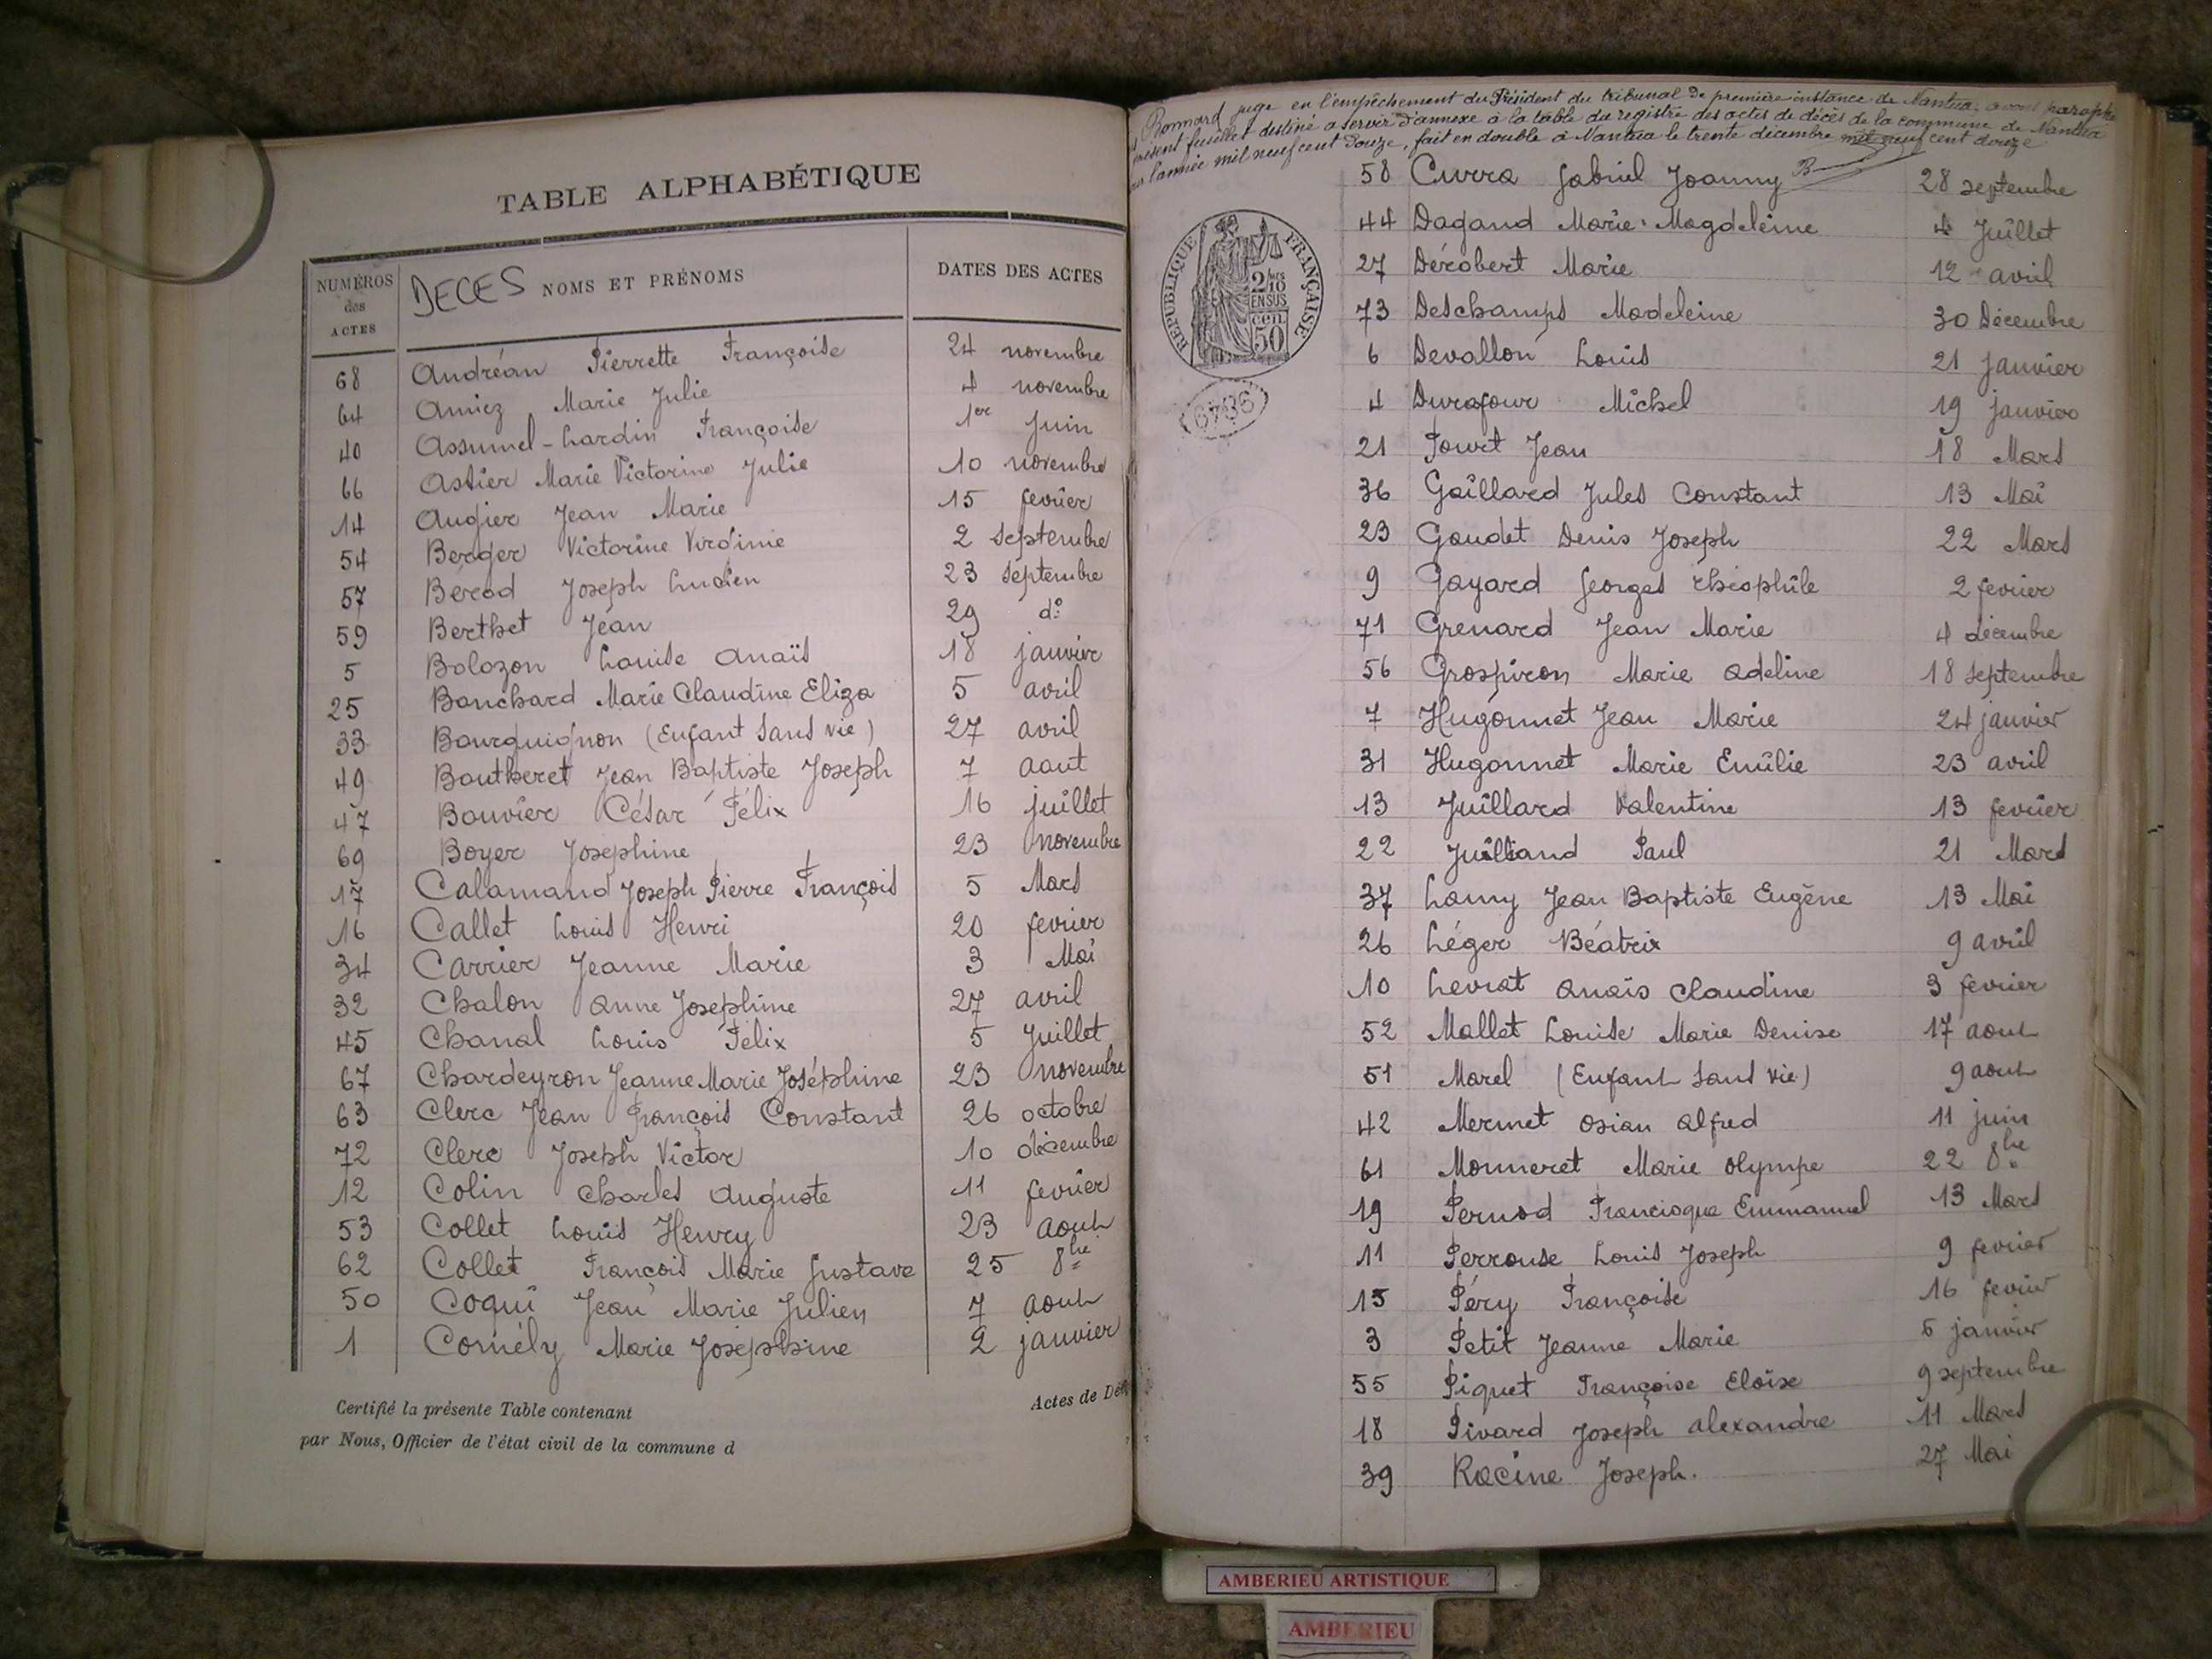 TABLE ALPHABÉTIQUE
NUMÉROS des ACTES
DECES NOMS ET PRÉNOMS
DATES DES ACTES
68 Andréan Pierrette Françoise 24 novembre
64 Amiez Marie Julie 4 novembre
40 Assumel-Lardin Françoise 1er Juin
66 Astier Marie Victorine Julie 10 novembre
14 Augier Jean Marie 15 fevrier
54 Berger Victorine Virginie 2 septembre
57 Bérod Joseph Lucien 23 septembre
59 Berthet Jean 29 do
5 Bolozon Louise Anaïs 18 janvier
25 Bonchard Marie Claudine Eliza 5 avril
33 Bourguignon (Enfant sans vie) 27 avril
49 Boutheret Jean Baptiste Joseph 7 aout
47 Bouvier César Félix 16 juillet
69 Boyer Josephine 23 novembre
17 Calamand Joseph Pierre François 5 Mars
16 Callet Louis Henri 20 fevrier
34 Carrier Jeanne Marie 3 Mai
32 Chalon Anne Josephine 27 avril
45 Chanal Louis Félix 5 Juillet
67 Chardeyron Jeanne Marie Joséphine 23 novembre
63 Clerc Jean François Constant 26 octobre
72 Clerc Joseph Victor 10 décembre
12 Colin Charles Auguste 11 fevrier
53 Collet Louis Henry 23 aout
62 Collet François Marie Gustave 25 8bre
50 Coqui Jean Marie Julien 7 aout
1 Cornély Marie Josephine 2 janvier
Certifié la présente Table contenant
Actes de Dé
par Nous, Officier de l'état civil de la commune d
Bonnard juge en l'empêchement du Président du tribunal de première instance de Nantua, avons paraphé
présent feuillet destiné a servir d'annexe à la table du registre des actes de décès de la commune de Nantua
l'année mil neuf cent douze, fait en double à Nantua le trente décembre mil neuf cent douze
RÉPUBLIQUE FRANÇAISE
2/10
EN SUS
50
6736
58 Curra Gabriel Joanny 28 septembre
44 Dagand Marie-Magdeleine 4 Juillet
27 Dérobert Marie 12 avril
73 Deschamps Madeleine 30 Décembre
6 Devallon Louis 21 janvier
4 Durafour Michel 19 janvier
21 Fouret Jean 18 Mars
36 Gaillard Jules Constant 13 Mai
23 Gaudet Denis Joseph 22 Mars
9 Gayard Georges théophile 2 fevrier
71 Grenard Jean Marie 4 décembre
56 Grospiron Marie Adeline 18 septembre
7 Hugonnet Jean Marie 24 janvier
31 Hugonnet Marie Emilie 23 avril
13 Juillard Valentine 13 fevrier
22 Juilland Paul 21 Mars
37 Lamy Jean Baptiste Eugène 13 Mai
26 Léger Béatrix 9 avril
10 Levrat Anaïs Claudine 3 fevrier
52 Mallet Louise Marie Denise 17 aout
51 Marel (Enfant sans vie) 9 aout
42 Mermet Osian Alfred 11 juin
61 Monneret Marie Olympe 22 8bre
19 Pernod Francisque Emmanuel 13 Mars
11 Perrouse Louis Joseph 9 fevrier
15 Péry Françoise 16 fevrier
3 Petit Jeanne Marie 5 janvier
55 Piquet Françoise Eloïse 9 septembre
18 Pivard Joseph Alexandre 11 Mars
39 Racine Joseph. 27 Mai
AMBERIEU ARTISTIQUE
AMBERIEU